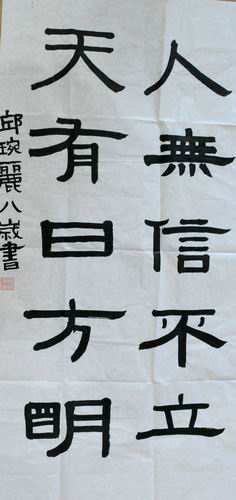 人無信不立
天有日方明
邱琬麗八歲書